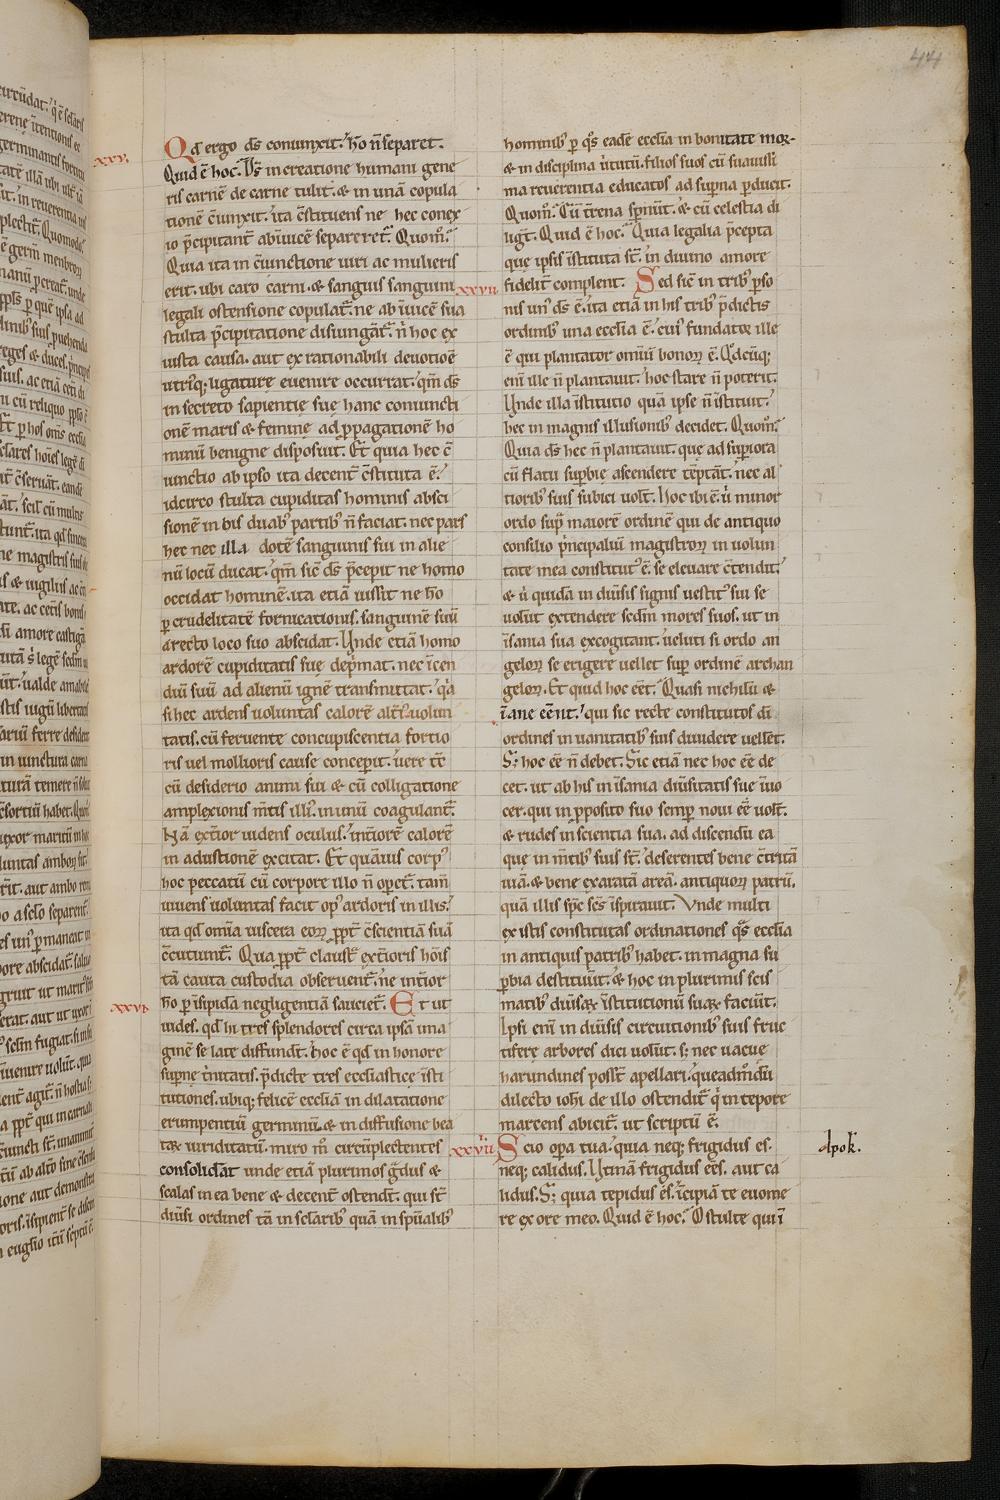 44
xxv.
Qd ergo ds coniunxit. ho n̄ separet.
Quid ē hoc. Ds̄ in creatione humani gene
ris carnē de carne tulit. & in unā copula
tionē c̄iunxit. ita c̄stituens ne hec conex
io p̄cipitant̄ ab inuicē separeret̄. Quom̄.
Quia ita in c̄iunctione uiri ac mulieris
erit. ubi caro carni. & sanguis sanguini
legali ostensione copulat̄. ne ab īuicē sua
stulta p̄cipitatione disiungāt̄. n̄ hoc ex
iusta causa. aut ex rationabili deuotioē
utriq; ligature euenire occurrat. qm̄ ds
in secreto sapientie sue hanc coniuncti
onē maris & femine ad ppagationē ho
minū benigne disposuit. Et quia hec c̄
iunctio ab ipso ita decent̄ c̄stituta ē.
idcirco stulta cupiditas hominis absci
sionē in his duab' partib' n̄ faciat. nec pars
hec nec illa dotē sanguinis sui in alie
nū locū ducat. qm̄ sic̄ ds p̄cepit ne homo
occidat hominē. ita etiā iussit ne ho
p crudelitatē fornicationis. sanguinē suū
a recto loco suo abscidat. Unde etiā homo
ardorē cupiditatis suę dep̄mat. nec īcen
diū suū ad alienū ignē transmittat. q̄a
si hec ardens uoluntas calorē alt̄i' uolun
tatis. cū feruente concupiscentia fortio
ris uel mollioris cause conceperit. uere tc̄
cū desiderio animi sui & cū colligatione
amplexionis m̄tis illi'. in unū coagulant̄.
Nā ext̄ior uidens oculus. int̄iorē calorē
in adustionē excitat. Et quāuis corp'
hoc peccatū cū corpore illo n̄ opet̄. tam̄
uiuens uoluntas facit op' ardoris in illis.
ita qd omnia uiscera eoꝝ ppt̄ c̄scientiā suā
c̄cutiunt̄. Qua ppt̄ claustr̄ ext̄ioris hōis
tā cauta custodia obseruent̄. ne int̄ior
ho p īsipidā negligentiā saucięt̄. Et ut
xxvi.
uides. qd hi tres splendores circa ipsā ima
ginē se late diffundt̄. hoc ē qd in honore
supnę t̄nitatis. p̄dicte tres eccl̄iastice īsti
tutiones. ubiq; felicē eccl̄iā in dilatatione
erumpentiū germinū. & in diffusione bea
taꝝ uiriditatū. miro m̊ circūplectentes
consolidāt unde etiā plurimos ḡdus &
scalas in ea bene & decent̄ ostendt̄. qui st̄
diūsi ordines tā in sc̄larib' quā in sp̄ualib'
hominib' p q̊s eadē eccl̄ia in bonitate moꝝ
& in disciplina ūtutū. filios suos cū suauissi
ma reuerentia educatos ad supna pducit.
Quom̊. Cū t̄rena spnūt. & cū celestia di
ligt̄. Quid ē hoc. Quia legalia p̄cepta
que ipsis īstituta st̄. in diuino amore
fidelit̄ complent. Sed sic̄ in trib' pso
xxvii
nis un' ds ē. ita etiā in his trib' p̄dictis
ordinib' una eccl̄ia ē. cui' fundator ille
ē qui plantator omniū bonoꝝ ē. Qdcūq;
eni ille n̄ plantauit. hoc stare n̄ poterit.
Unde illa īstitutio quā ipse n̄ īstituit.
hec in magnis illusionib' decidet. Quom̊.
Quia ds hec n̄ plantauit. que ad supiora
cū flatu supbie ascendere tēptāt̄. nec al
tiorib' suis subici uolt̄. Hoc ibi ē. ū minor
ordo sup̄ maiorē ordinē qui de antiquo
consilio p̄ncipaliū magistroꝝ in uolun
tate mea constitut' ē. se eleuare c̄tendit.
& ū quidā in diūsis signis uestit' sui se
uolūt extendere scdm mores suos. ut in
īsania sua excogitant. ueluti si ordo an
geloꝝ se erigere uellet sup ordinē archan
geloꝝ. Et quid hoc eēt. Quasi nichilū &
īane eēnt. qui sic recte constitutos dī
ordines in uanitatib' suis diuidere uellet̄.
S; hoc eē n̄ debet. Sic etiā nec hoc eē de
cet. ut ab his in īsania diūsitatis suę iuo
cer. qui in pposito suo semp noui eē uolt̄.
& rudes in scientia sua. ad discendū ea
que in m̄tib' suis st̄. deserentes bene c̄tritā
uiā. & bene exaratā areā. antiquoꝝ patrū.
quā illis sp̄c sc̄s īspirauit. Vnde multi
ex istis constitutas ordinationes q̄s eccl̄ia
in antiquis patrib' habet. in magna su
pbia destruūt. & hoc in plurimis scis
matib' diūsaꝝ īstitutionū suaꝝ faciūt.
Ipsi eni in diūsis circuitionib' suis fruc
tiferę arbores dici uolūt. s; nec uacuę
harundines posst̄ apellari. queadm̊dū
dilecto iohi de illo ostendit̄ q' in tepore
marcens abicit̄. ut scriptū ē.
Scio opa tua. quia neq; frigidus es.
xxviii
Apok.
neq; calidus. Utinā frigidus eēs. aut ca
lidus. S; quia tepidus es. īcipiā te euome
re ex ore meo. Quid ē hoc. O stulte qui ī